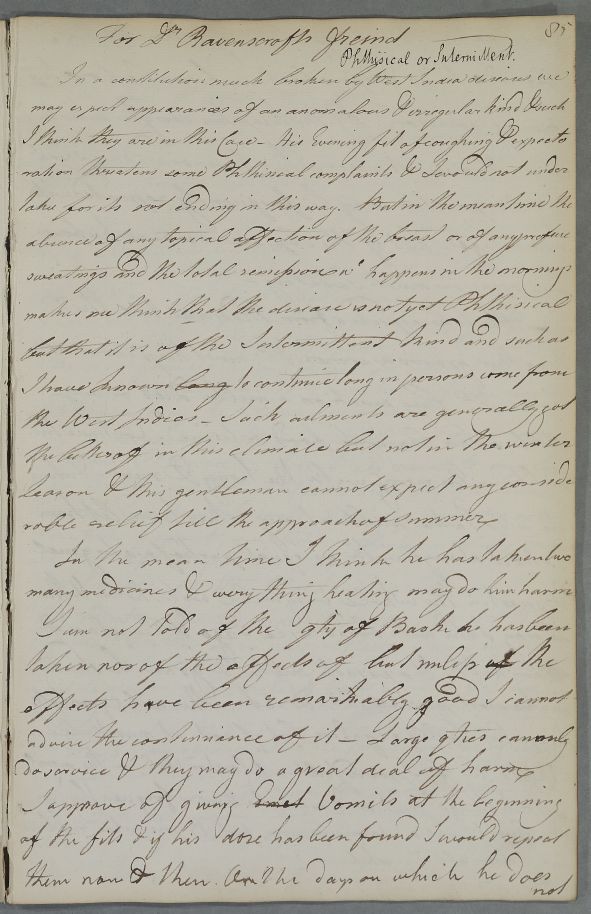 85
For Dr Ravenscrofts friend
Phthisical or Intermittent.
In a constitution much broken by West India diseases we
may expect appearances of an anomalous & irregular kind & such
I think they are in this Case - His Evening fit of coughing & expecto
ration threatens some Phthisical complaints & I would not under
take for its not ending in this way. But in the mean time the
absence of any topical affection of the breast or of any profuse
sweatings and the total remission wc happens in the mornings
makes me think that the disease is not yet Phthisical
but that it is of the Intermittent kind and such as
I have known long to continue long in persons come from
the West Indies - Such ailments are generally got
the better of in this climate but not in the winter
season & this gentleman cannot expect any conside
rable relief till the approach of summer
In the mean time I think he has taken two
many medicines & every thing heating may do him harm
I am not told of the qty of Bark he has been
taken nor of the effects of but unless of the
effects have been remarkably good I cannot
advise the continuance of it - Large qties can only
do service & they may do a great deal of harm
I approve of giving Emet Vomits at the beginning
of the fits & if his dose has been found I would repeat
them now & then. On the days on which he does
not